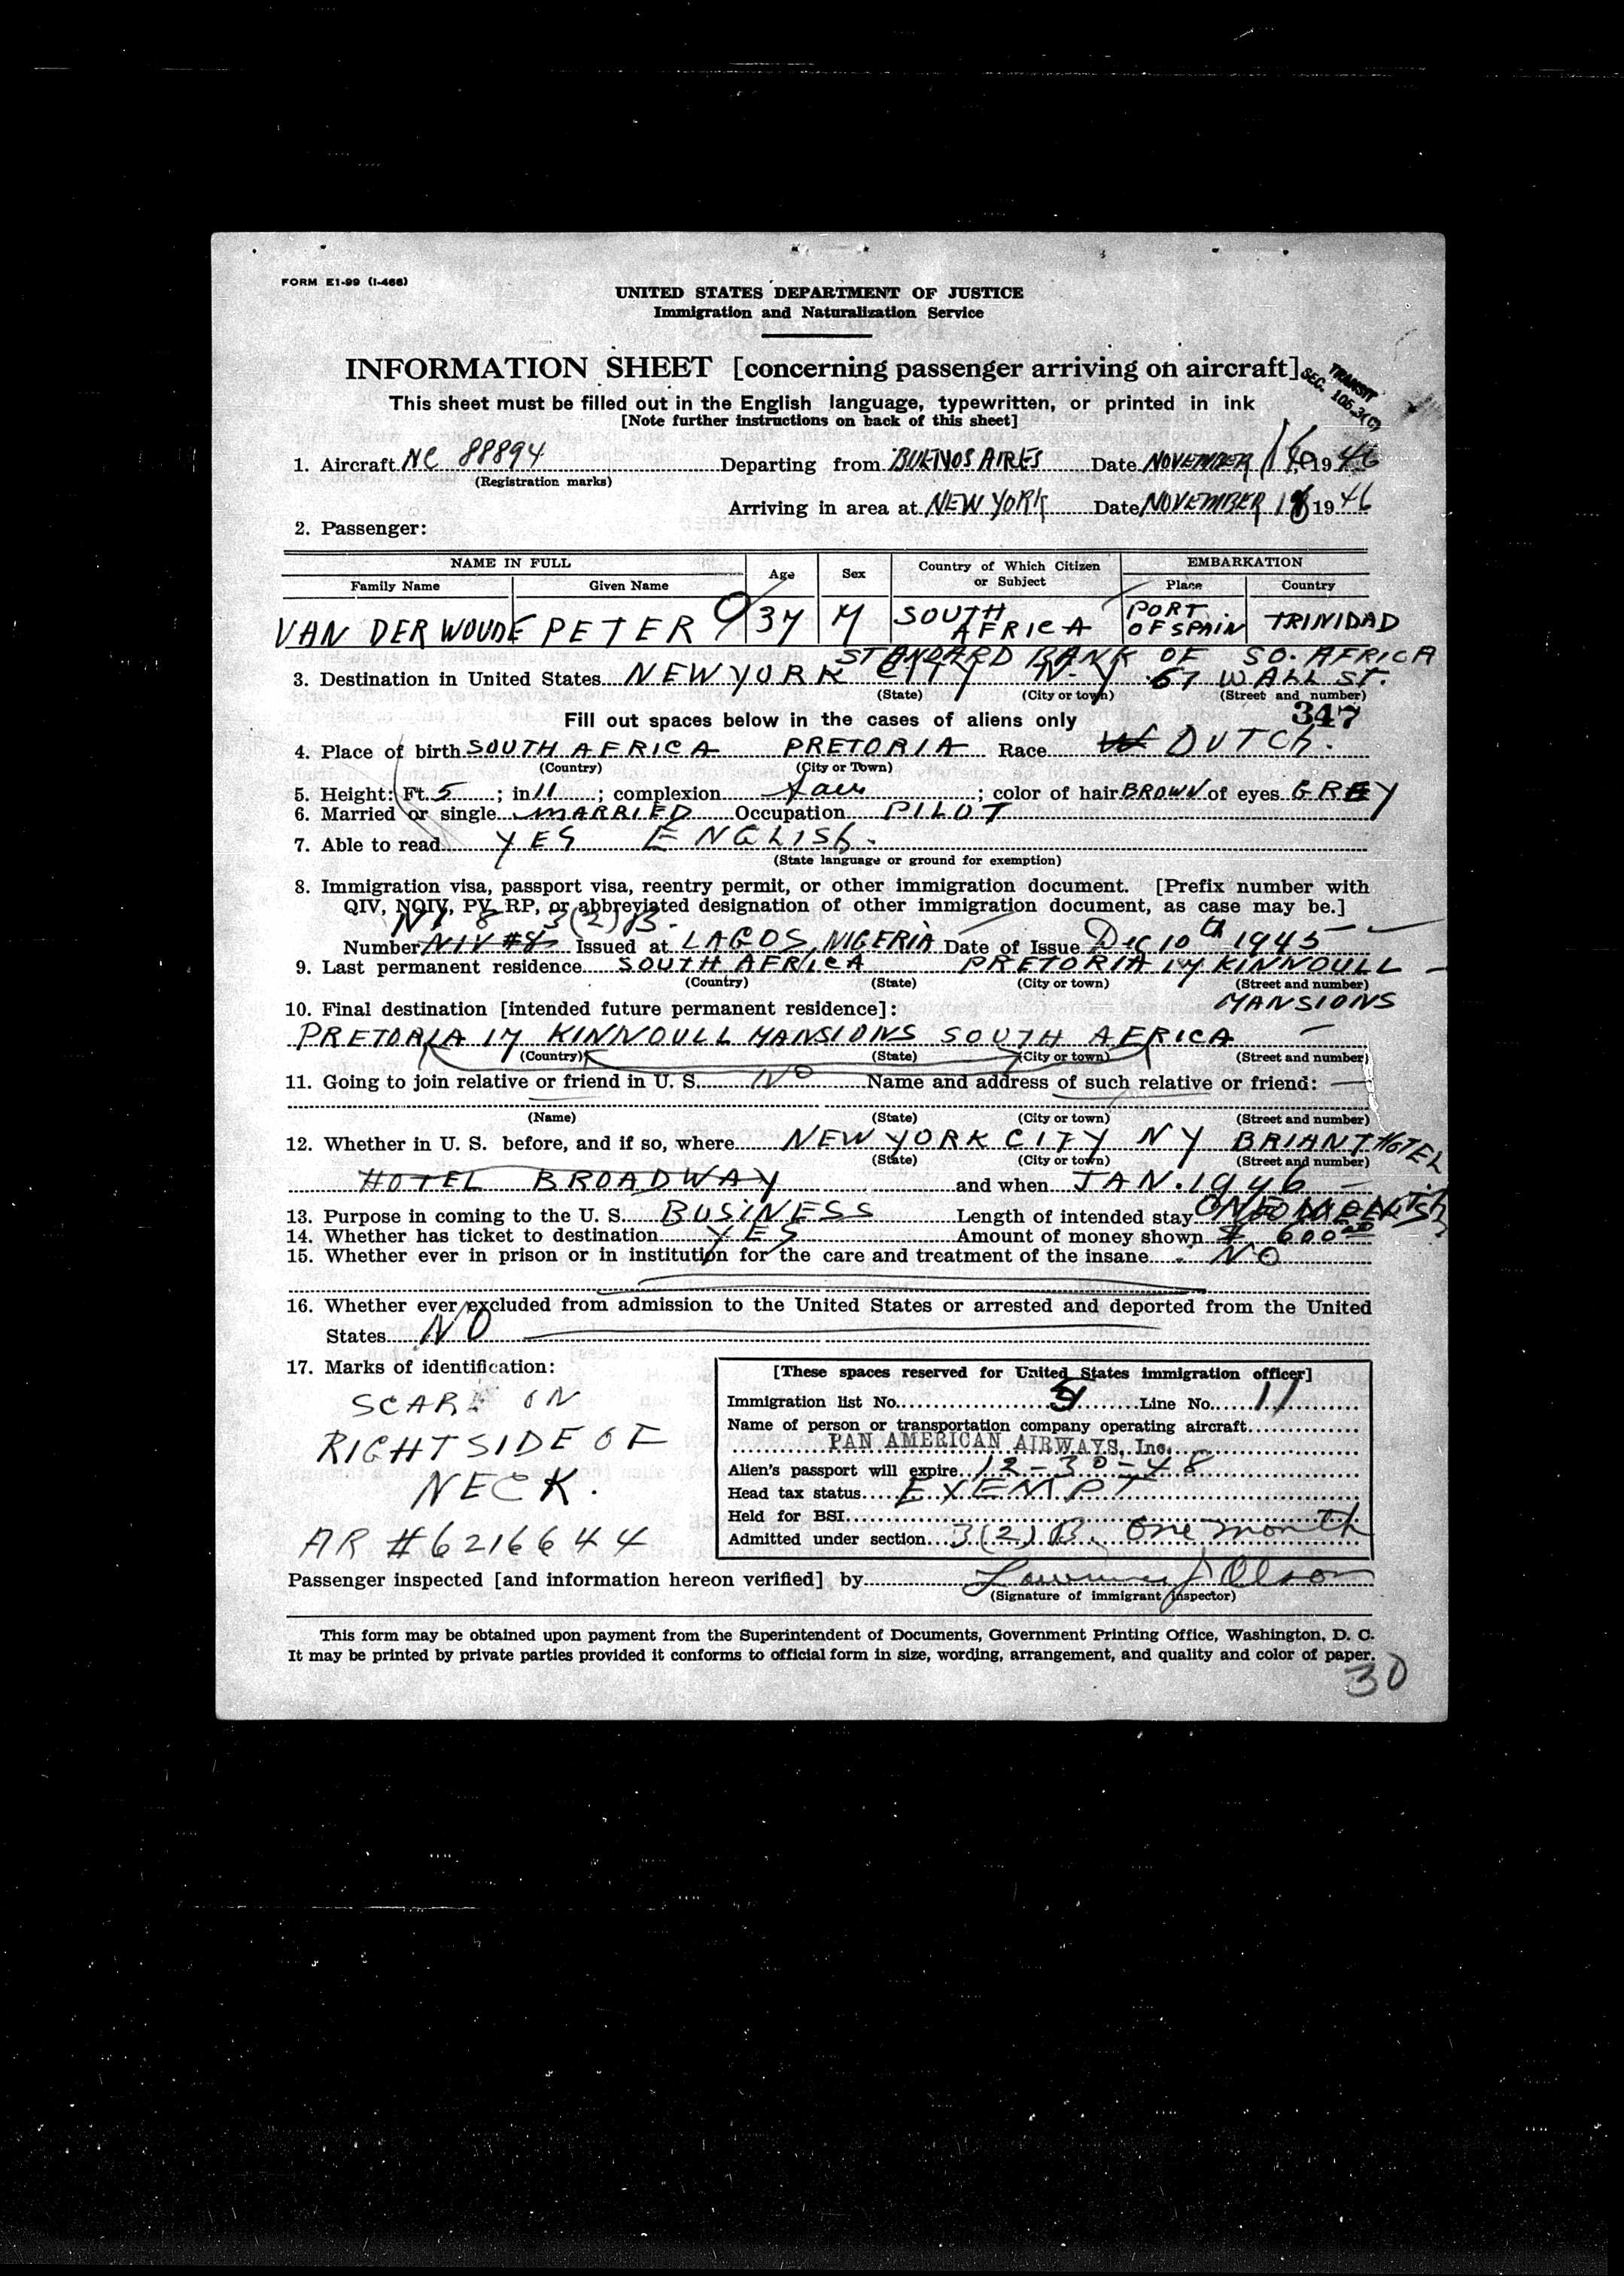 FORM E1-99 (I-466)
UNITED STATES DEPARTMENT OF JUSTICE
Immigration and Naturalization Service
INFORMATION SHEET [concerning passenger arriving on aircraft]
TRANSIT
SEC. 105.3(C)
This sheet must be filled out in the English language, typewritten, or printed in ink
[Note further instructions on back of this sheet]
1. Aircraft NC 88894 Departing from BUENOS AIRES Date NOVEMBER 16 1946
(Registration marks)
Arriving in area at NEW YORK Date NOVEMBER 18 1946
2. Passenger:
NAME IN FULL Age Sex Country of Which Citizen or Subject EMBARKATION
Family Name Given Name Place Country
VAN DER WOUDE PETER 37 M SOUTH AFRICA PORT OF SPAIN TRINIDAD
STANDARD BANK OF SO. AFRICA
3. Destination in United States NEW YORK CITY N.Y. 67 WALL ST.
(State) (City or town) (Street and number)
Fill out spaces below in the cases of aliens only 347
4. Place of birth SOUTH AFRICA PRETORIA Race DUTCH.
(Country) (City or Town)
5. Height: Ft. 5; in 11; complexion fair; color of hair BROWN of eyes GREY
6. Married or single MARRIED Occupation PILOT
7. Able to read YES ENGLISH.
(State language or ground for exemption)
8. Immigration visa, passport visa, reentry permit, or other immigration document. [Prefix number with
QIV, NQIV, PV, RP, or abbreviated designation of other immigration document, as case may be.]
NI 8 3(2)B.
Number NIV #8 Issued at LAGOS, NIGERIA Date of Issue Dec 10th 1945
9. Last permanent residence SOUTH AFRICA PRETORIA 17 KINNOULL
(Country) (State) (City or town) (Street and number)
10. Final destination [intended future permanent residence]: MANSIONS
PRETORIA 17 KINNOULL MANSIONS SOUTH AFRICA
(Country) (State) (City or town) (Street and number)
11. Going to join relative or friend in U. S. NO Name and address of such relative or friend:
(Name) (State) (City or town) (Street and number)
12. Whether in U. S. before, and if so, where NEW YORK CITY NY BRIANT HOTEL
(State) (City or town) (Street and number)
HOTEL BROADWAY and when JAN. 1946
13. Purpose in coming to the U. S. BUSINESS Length of intended stay ONE MONTH
14. Whether has ticket to destination YES Amount of money shown $ 600.00
15. Whether ever in prison or in institution for the care and treatment of the insane NO
16. Whether ever excluded from admission to the United States or arrested and deported from the United
States NO
17. Marks of identification:
SCAR ON
RIGHT SIDE OF
NECK.
AR #6216644
[These spaces reserved for United States immigration officer]
Immigration list No. Line No. 11
Name of person or transportation company operating aircraft
PAN AMERICAN AIRWAYS, Inc.
Alien's passport will expire 12-30-48
Head tax status EXEMPT
Held for BSI
Admitted under section 3(2)B. One month
Passenger inspected [and information hereon verified] by Olson
(Signature of immigrant inspector)
This form may be obtained upon payment from the Superintendent of Documents, Government Printing Office, Washington, D. C.
It may be printed by private parties provided it conforms to official form in size, wording, arrangement, and quality and color of paper.
30